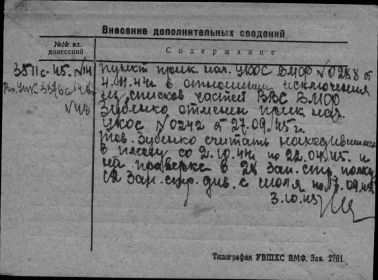 Внесение дополнительных сведений
№№ вх. донесений
Содержание
3511с-45. №14
пункт прик. нач. УКОС ВМФ № 0288 от
4.11.44 в отношении исключения
из списков частей ВВС ВМФ
Зубенко отменен прик. нач.
УКОС № 0242 от 27.09.45 г.
Тов. Зубенко считать находившимся
в плену со 2.10.44 по 22.04.45 и
на проверке в 21 зап. стр. полку
12 зап. стр. див. с июля по 7.09.45
3.10.45
Типография УВШХС ВМФ. Зак. 2761.